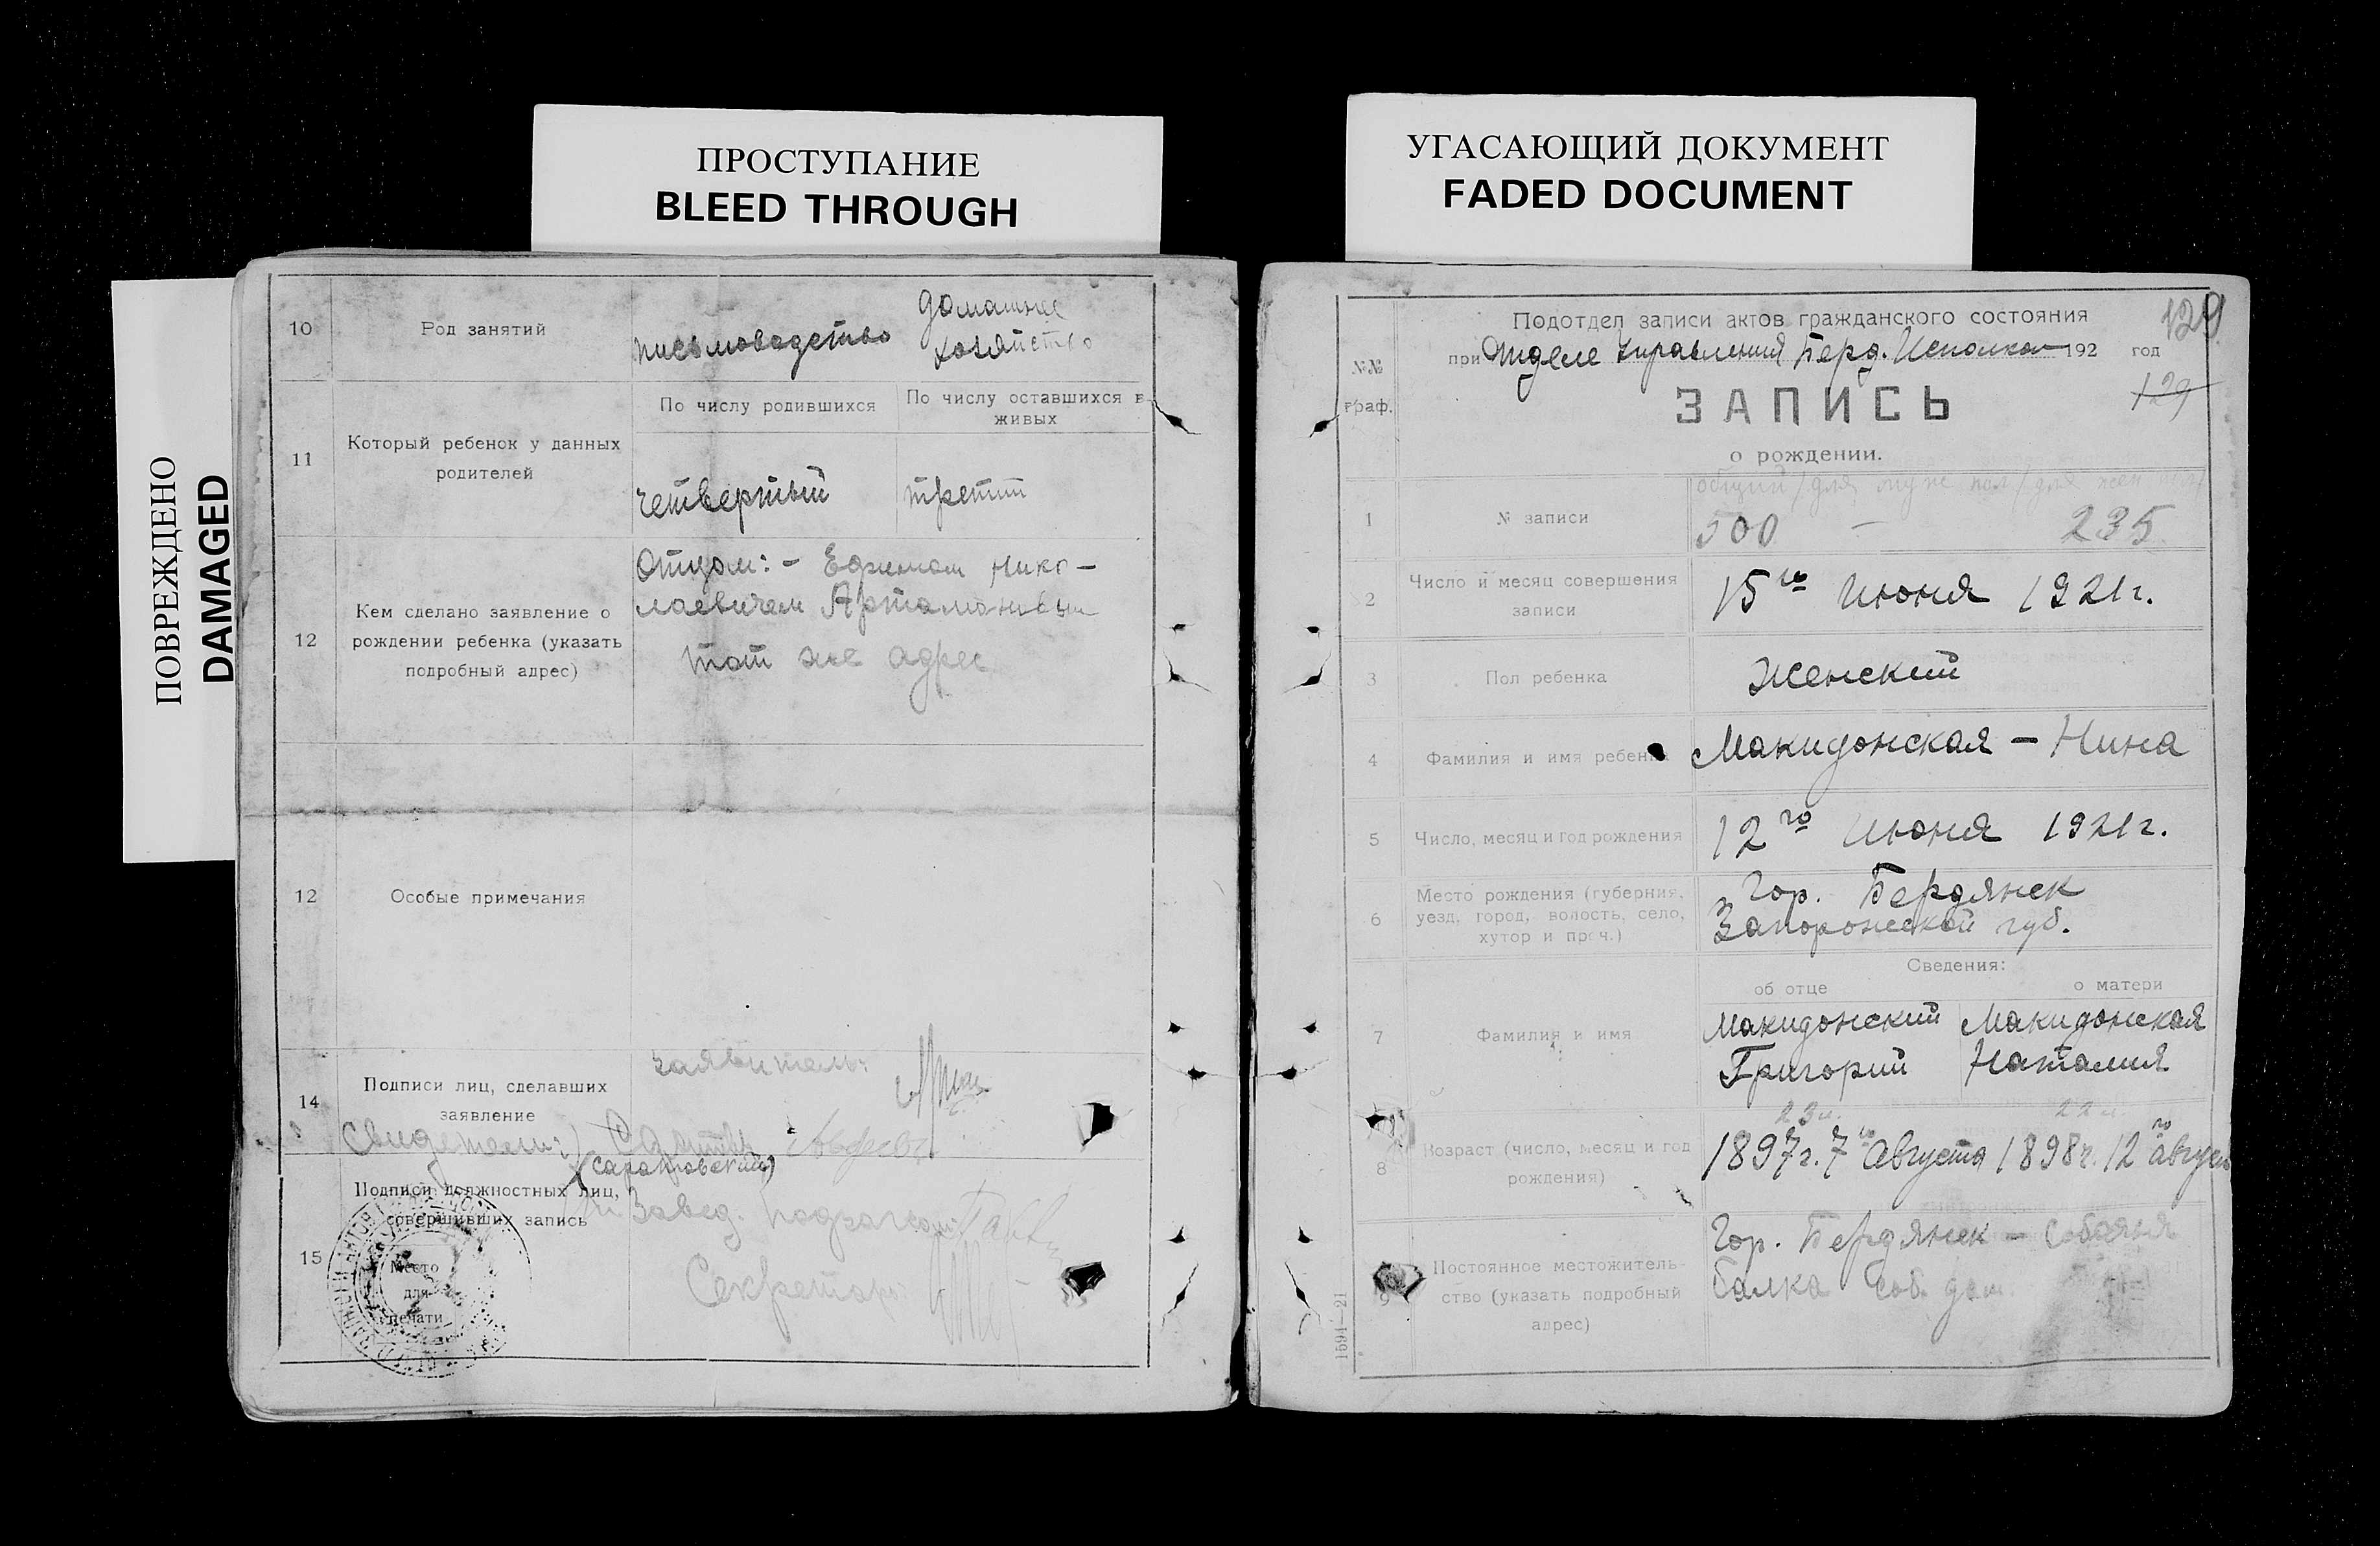 ПРОСТУПАНИЕ
BLEED THROUGH
УГАСАЮЩИЙ ДОКУМЕНТ
FADED DOCUMENT
ПОВРЕЖДЕНО
DAMAGED
10
Род занятий
письмоводство
домашнее
хозяйство
11
Который ребенок у данных
родителей
По числу родившихся
По числу оставшихся в
живых
четвертый
третий
12
Кем сделано заявление о
рождении ребенка (указать
подробный адрес)
Отцом: - Ефимом Нико-
лаевичем Артамоновым
тот же адрес
12
Особые примечания
14
Подписи лиц, сделавших
заявление
заявитель:
свидетели:
(сарактовский)
15
Подписи должностных лиц,
совершивших запись
Место
для
печати
Завед. подраг
Секретарь
№№
граф.
Подотдел записи актов гражданского состояния
при Отделе Управления Берд. Исполком 192 год
129
129
ЗАПИСЬ
о рождении.
1
№ записи
общий / для муж пол / для жен пол
500 — 235
2
Число и месяц совершения
записи
15го Июня 1921г.
3
Пол ребенка
Женский
4
Фамилия и имя ребенка
Макидонская - Нина
5
Число, месяц и год рождения
12го Июня 1921г.
6
Место рождения (губерния,
уезд, город, волость, село,
хутор и проч.)
Гор. Бердянск
Запорожской губ.
Сведения:
об отце
о матери
7
Фамилия и имя
Макидонский
Григорий
Макидонская
Наталия
8
Возраст (число, месяц и год
рождения)
23л.
1897г. 7го Августа
22л.
1898г. 12го августа
9
Постоянное местожитель-
ство (указать подробный
адрес)
Гор. Бердянск - Собачья
балка соб. дом.
1591—21